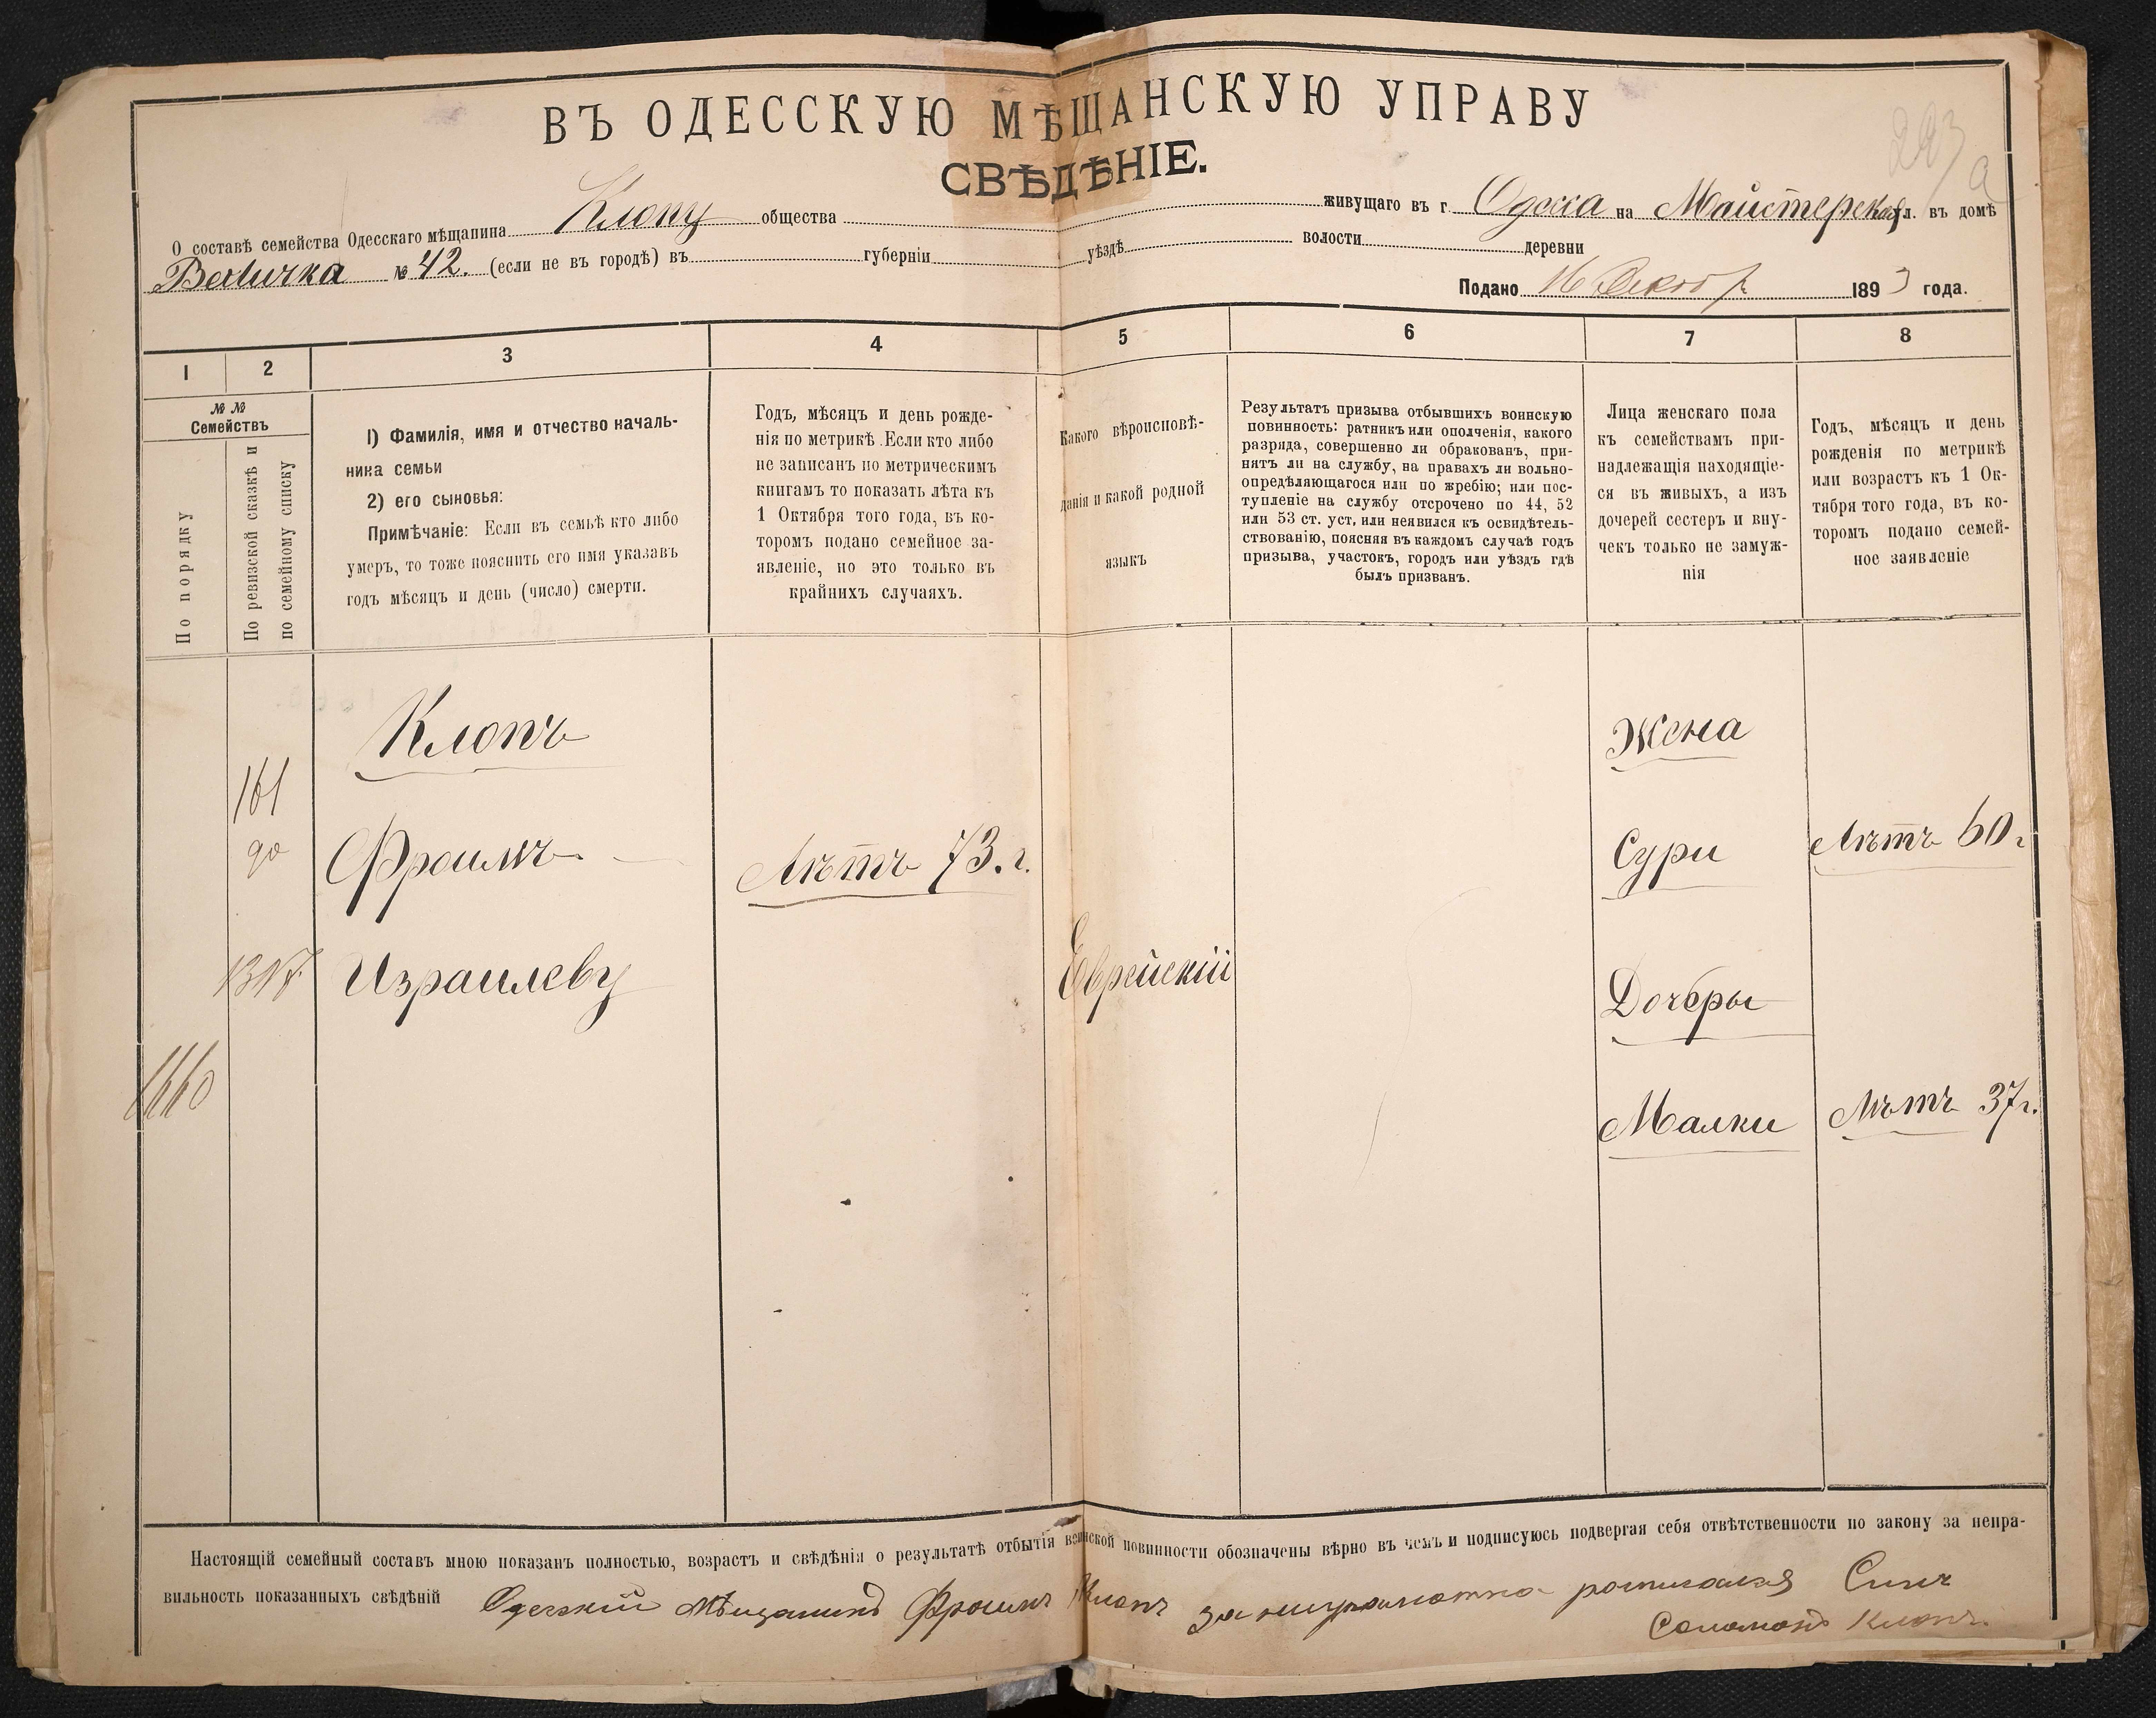 ВЪ ОДЕССКУЮ МѢЩАНСКУЮ УПРАВУ
СВѢДѢНІЕ.
О составѣ семейства Одесскаго мѣщанина Клопу общества живущаго въ г. Одесса на Майстерская ул. въ домѣ
№ 42. (если не въ городѣ) въ губерніи уѣздѣ волости деревни
Подано 16 1893 года.
1 2 3 4 5 6 7 8
№ №
Семействъ
По порядку
По ревизской сказкѣ и
по семейному списку
1) Фамилія, имя и отчество началь-
ника семьи
2) его сыновья:
Примѣчаніе: Если въ семьѣ кто либо
умеръ, то тоже пояснить его имя указавъ
годъ мѣсяцъ и день (число) смерти.
Годъ, мѣсяцъ и день рожде-
нія по метрикѣ. Если кто либо
не записанъ по метрическимъ
книгамъ то показать лѣта къ
1 Октября того года, въ ко-
торомъ подано семейное за-
явленіе, но это только въ
крайнихъ случаяхъ.
Какого вѣроисповѣ-
данія и какой родной
языкъ
Результатъ призыва отбывшихъ воинскую
повинность: ратникъ или ополченія, какого
разряда, совершенно ли обракованъ, при-
нятъ ли на службу, на правахъ ли вольно-
опредѣляющагося или по жребію; или пос-
тупленіе на службу отсрочено по 44, 52
или 53 ст. уст. или неявился къ освидѣтель-
ствованію, поясняя въ каждомъ случаѣ годъ
призыва, участокъ, городъ или уѣздъ гдѣ
былъ призванъ.
Лица женскаго пола
къ семействамъ при-
надлежащія находящіе-
ся въ живыхъ, а изъ
дочерей сестеръ и вну-
чекъ только не замуж-
нія
Годъ, мѣсяцъ и день
рожденія по метрикѣ
или возрастъ къ 1 Ок-
тября того года, въ ко-
торомъ подано семей-
ное заявленіе
Клопъ
Жена
161
Фроимъ
Лѣтъ 73. г.
Сури
Лѣтъ 60 г
Израилеву
Еврейскій
Дочеры
1660
Малки
Лѣтъ 37 г.
Настоящій семейный составъ мною показанъ полностью, возрастъ и свѣдѣнія о результатѣ отбытія воинской повинности обозначены вѣрно въ чемъ и подписуюсь подвергая себя отвѣтственности по закону за непра-
вильность показанныхъ свѣдѣній Одескій мѣщанинъ Фроимъ Клопъ за Синъ
Соломонъ Клопъ.